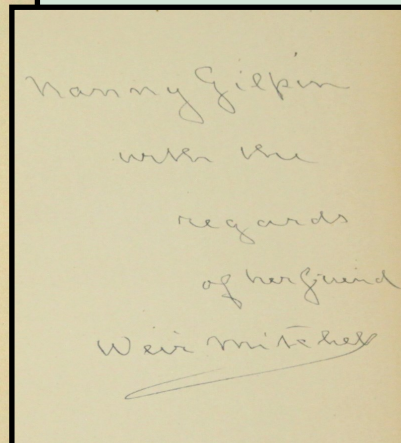 Nanny Gilpin
with the
regards
of her friend
Weir Mitchell